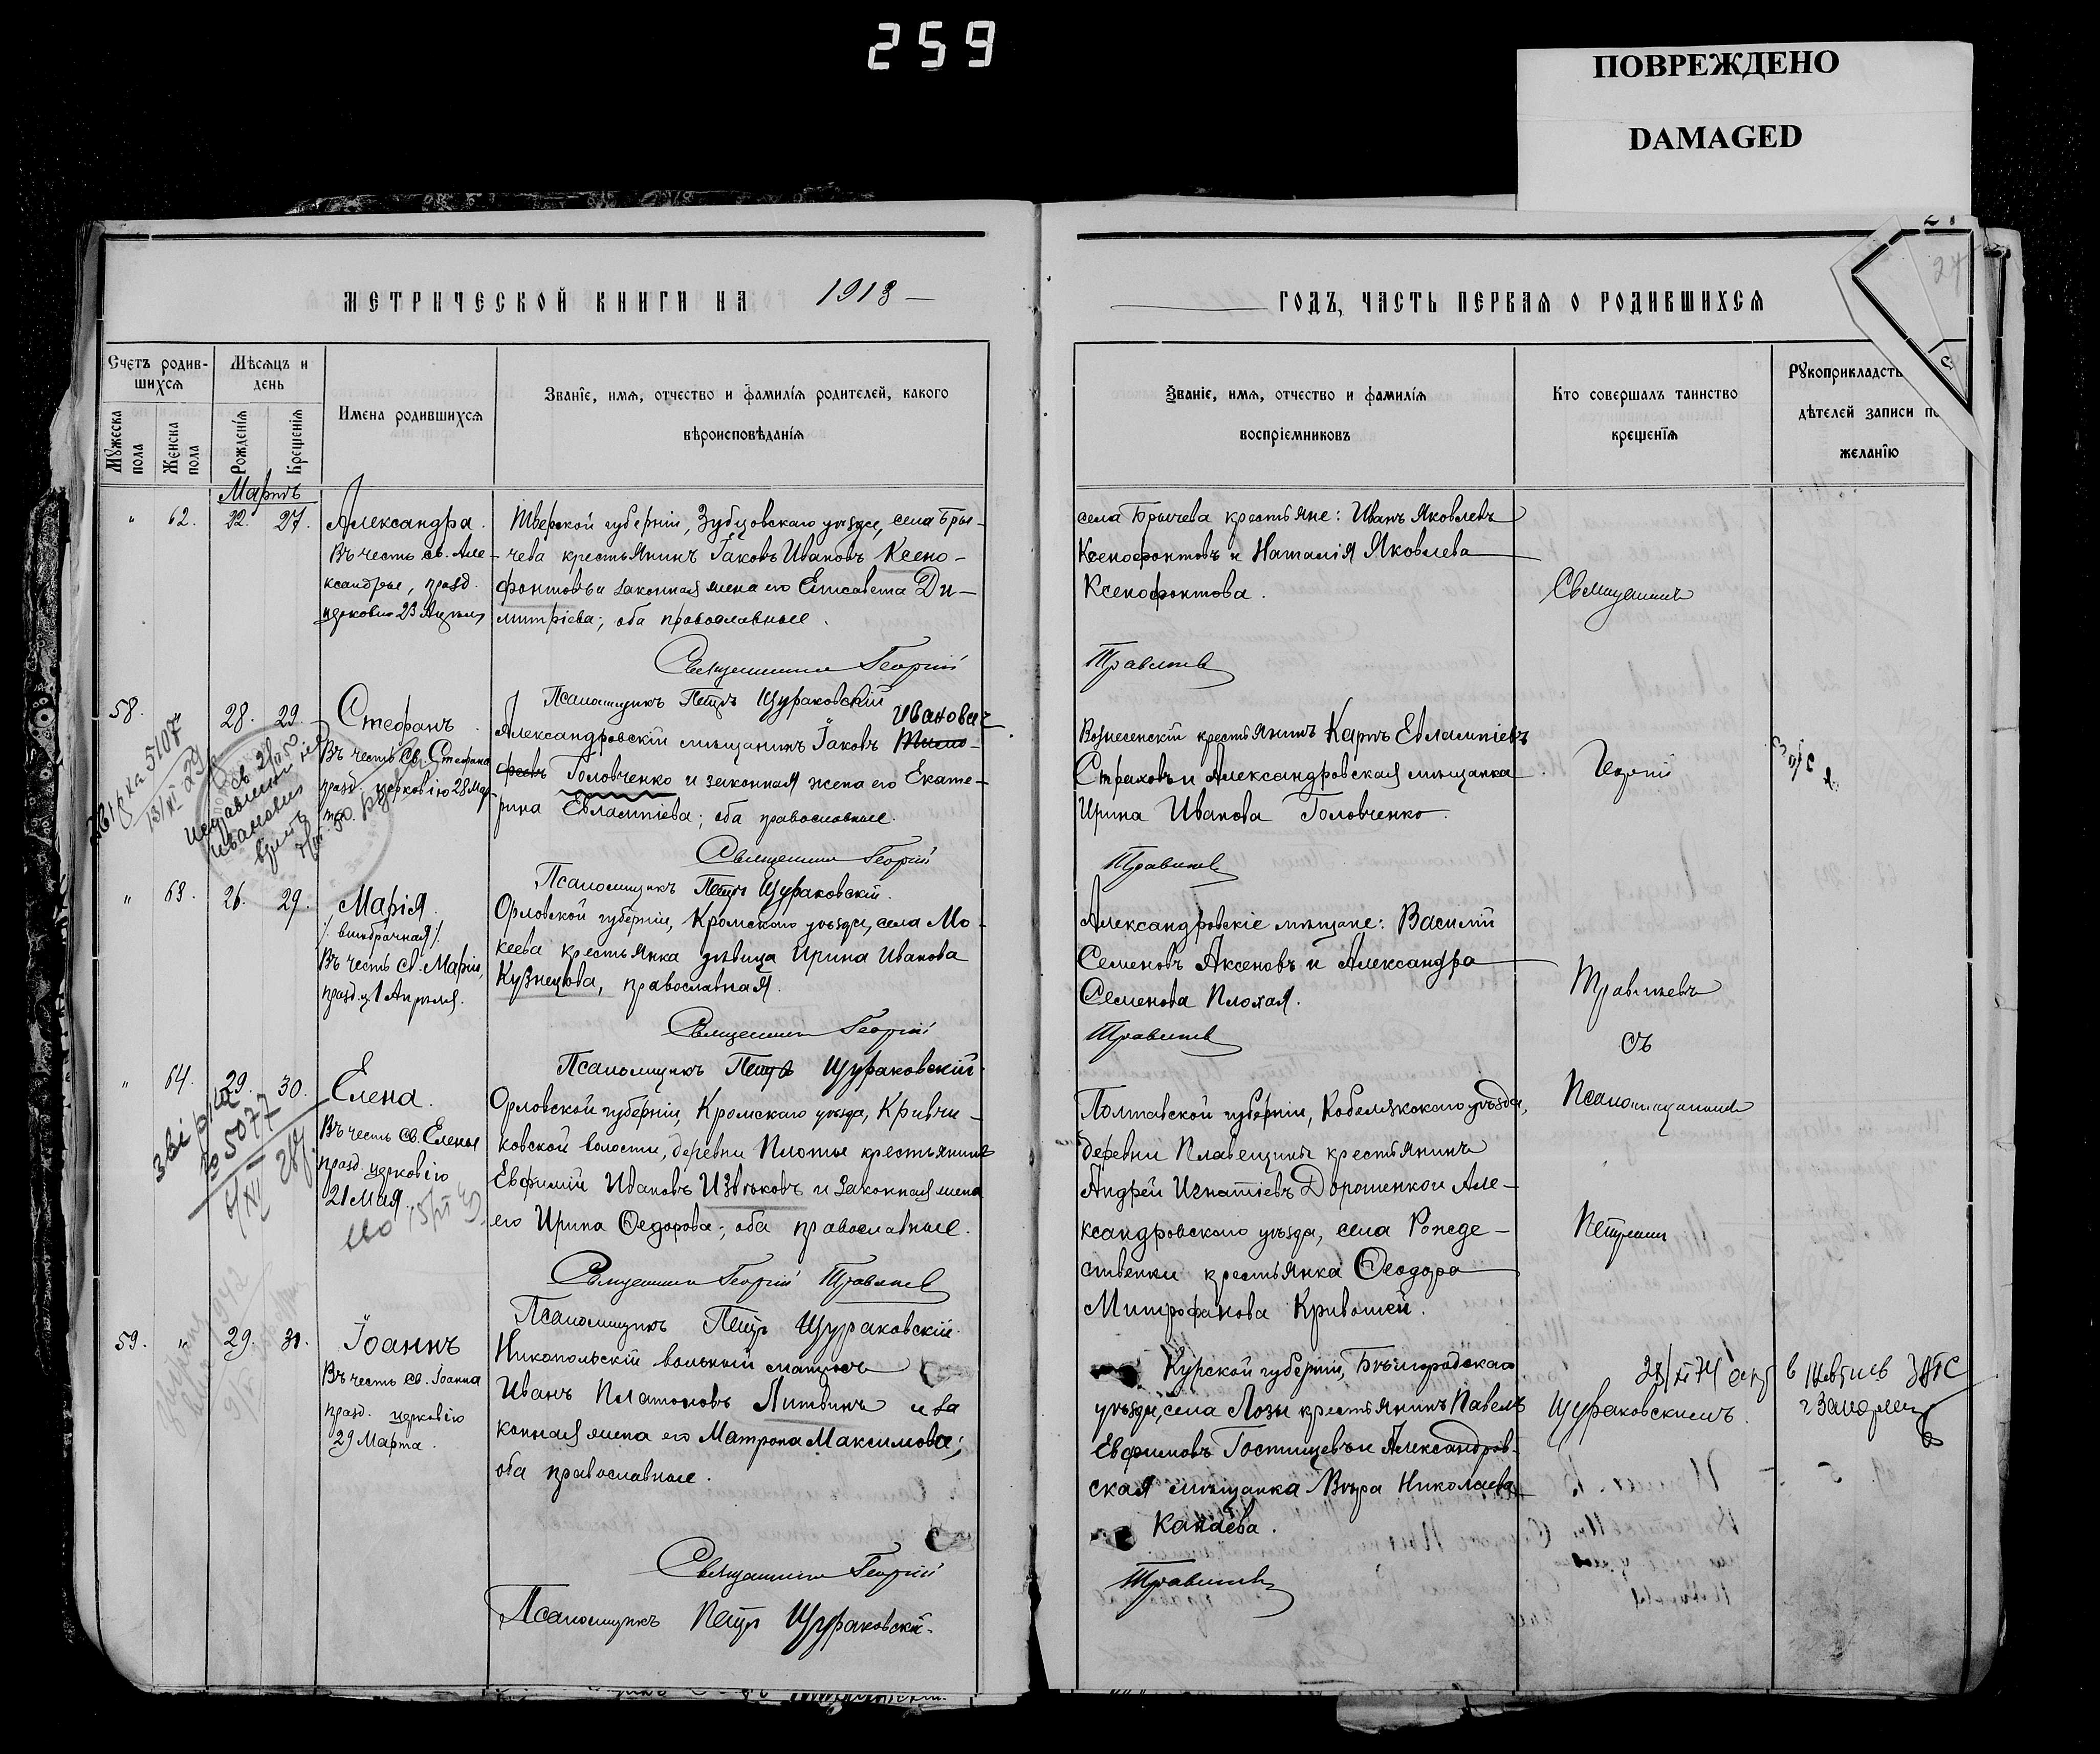 259
ПОВРЕЖДЕНО
DAMAGED
МЕТРИЧЕСКОЙ КНИГИ НА 1913
ГОДЪ, ЧАСТЬ ПЕРВАЯ О РОДИВШИХСЯ
27
Счетъ родив-
шихся
Мужеска
пола
Женска
пола
Мѣсяцъ и
день
Рожденія
Крещенія
Имена родившихся
Званіе, имя, отчество и фамилія родителей, какого
вѣроисповѣданія
Званіе, имя, отчество и фамилія
воспріемниковъ
Кто совершалъ таинство
крещенія
Рукоприкладст
дѣтелей записи по
желанію
Мартъ
" 62. 22. 27.
Александра.
Въ честь св. Але-
ксандры, празд.
церковію 23 Апрѣля
Тверской губерніи, Зубцовскаго уѣзда, села Бры-
чева крестьянинъ Іаковъ Ивановъ Ксено-
фонтовъ и законная жена его Елисавета Ди-
митріева; оба православные.
Священникъ Георгій
Псаломщикъ Петръ Щураковскій
села Брычева крестьяне: Иванъ Яковлевъ
Ксенофонтовъ и Наталія Яковлева
Ксенофонтова.
Травлевъ
Священникъ
58. 28. 29.
Стефанъ.
Въ честь Св. Стефана
празд. церковію 28 Мар-
та.
Иванович
Александровскій мѣщанинъ Іаковъ Тимо-
феевъ Головченко и законная жена его Екате-
рина Евлампіева; оба православные.
Священникъ Георгій
Псаломщикъ Петръ Щураковскій.
5107
Вознесенскій крестьянинъ Карпъ Евлампіевъ
Страховъ и Александровская мѣщанка
Ирина Иванова Головченко.
Георгій
" 63. 26. 29.
Марія.
/внѣбрачная/.
Въ честь св. Маріи,
празд. ц. 1 Апрѣля.
Орловской губерніи, Кромскаго уѣзда, села Мо-
кеева крестьянка дѣвица Ирина Иванова
Кузнецова, православная.
Священникъ Георгій
Псаломщикъ Петръ Щураковскій.
Александровскіе мѣщане: Василій
Семеновъ Аксеновъ и Александра
Семенова Плохая.
съ
" 64. 29. 30.
Елена.
Въ честь св. Елены
празд. церковію
21 Мая.
5077
Орловской губерніи, Кромскаго уѣзда, Кривчи-
ковской волости, деревни Плоты крестьянинъ
Евфимій Ивановъ Извѣковъ и законная жена
его Ирина Ѳедорова; оба православные.
Священникъ Георгій
Псаломщикъ Петръ Щураковскій.
Полтавской губерніи, Кобелякскаго уѣзда,
деревни Плавещины крестьянинъ
Андрей Игнатіевъ Дорошенко и Але-
ксандровскаго уѣзда, села Рожде-
ственки крестьянка Ѳеодора
Митрофанова Кривошей.
Псаломщикомъ
Петромъ
59. " 29. 31.
Іоаннъ
Въ честь св. Іоанна
празд. церковію
29 Марта.
Никопольскій вольный матросъ
Иванъ Платоновъ Литвинъ и за
конная жена его Матрона Максимова;
оба православные.
Священникъ Георгій
Псаломщикъ Петръ Щураковскій.
Курской губерніи, Бѣлгородскаго
уѣзда, села Лозы крестьянинъ Павелъ
Евфимовъ Гостищевъ и Александров-
ская мѣщанка Вѣра Николаева
Канаева.
Щураковскимъ.